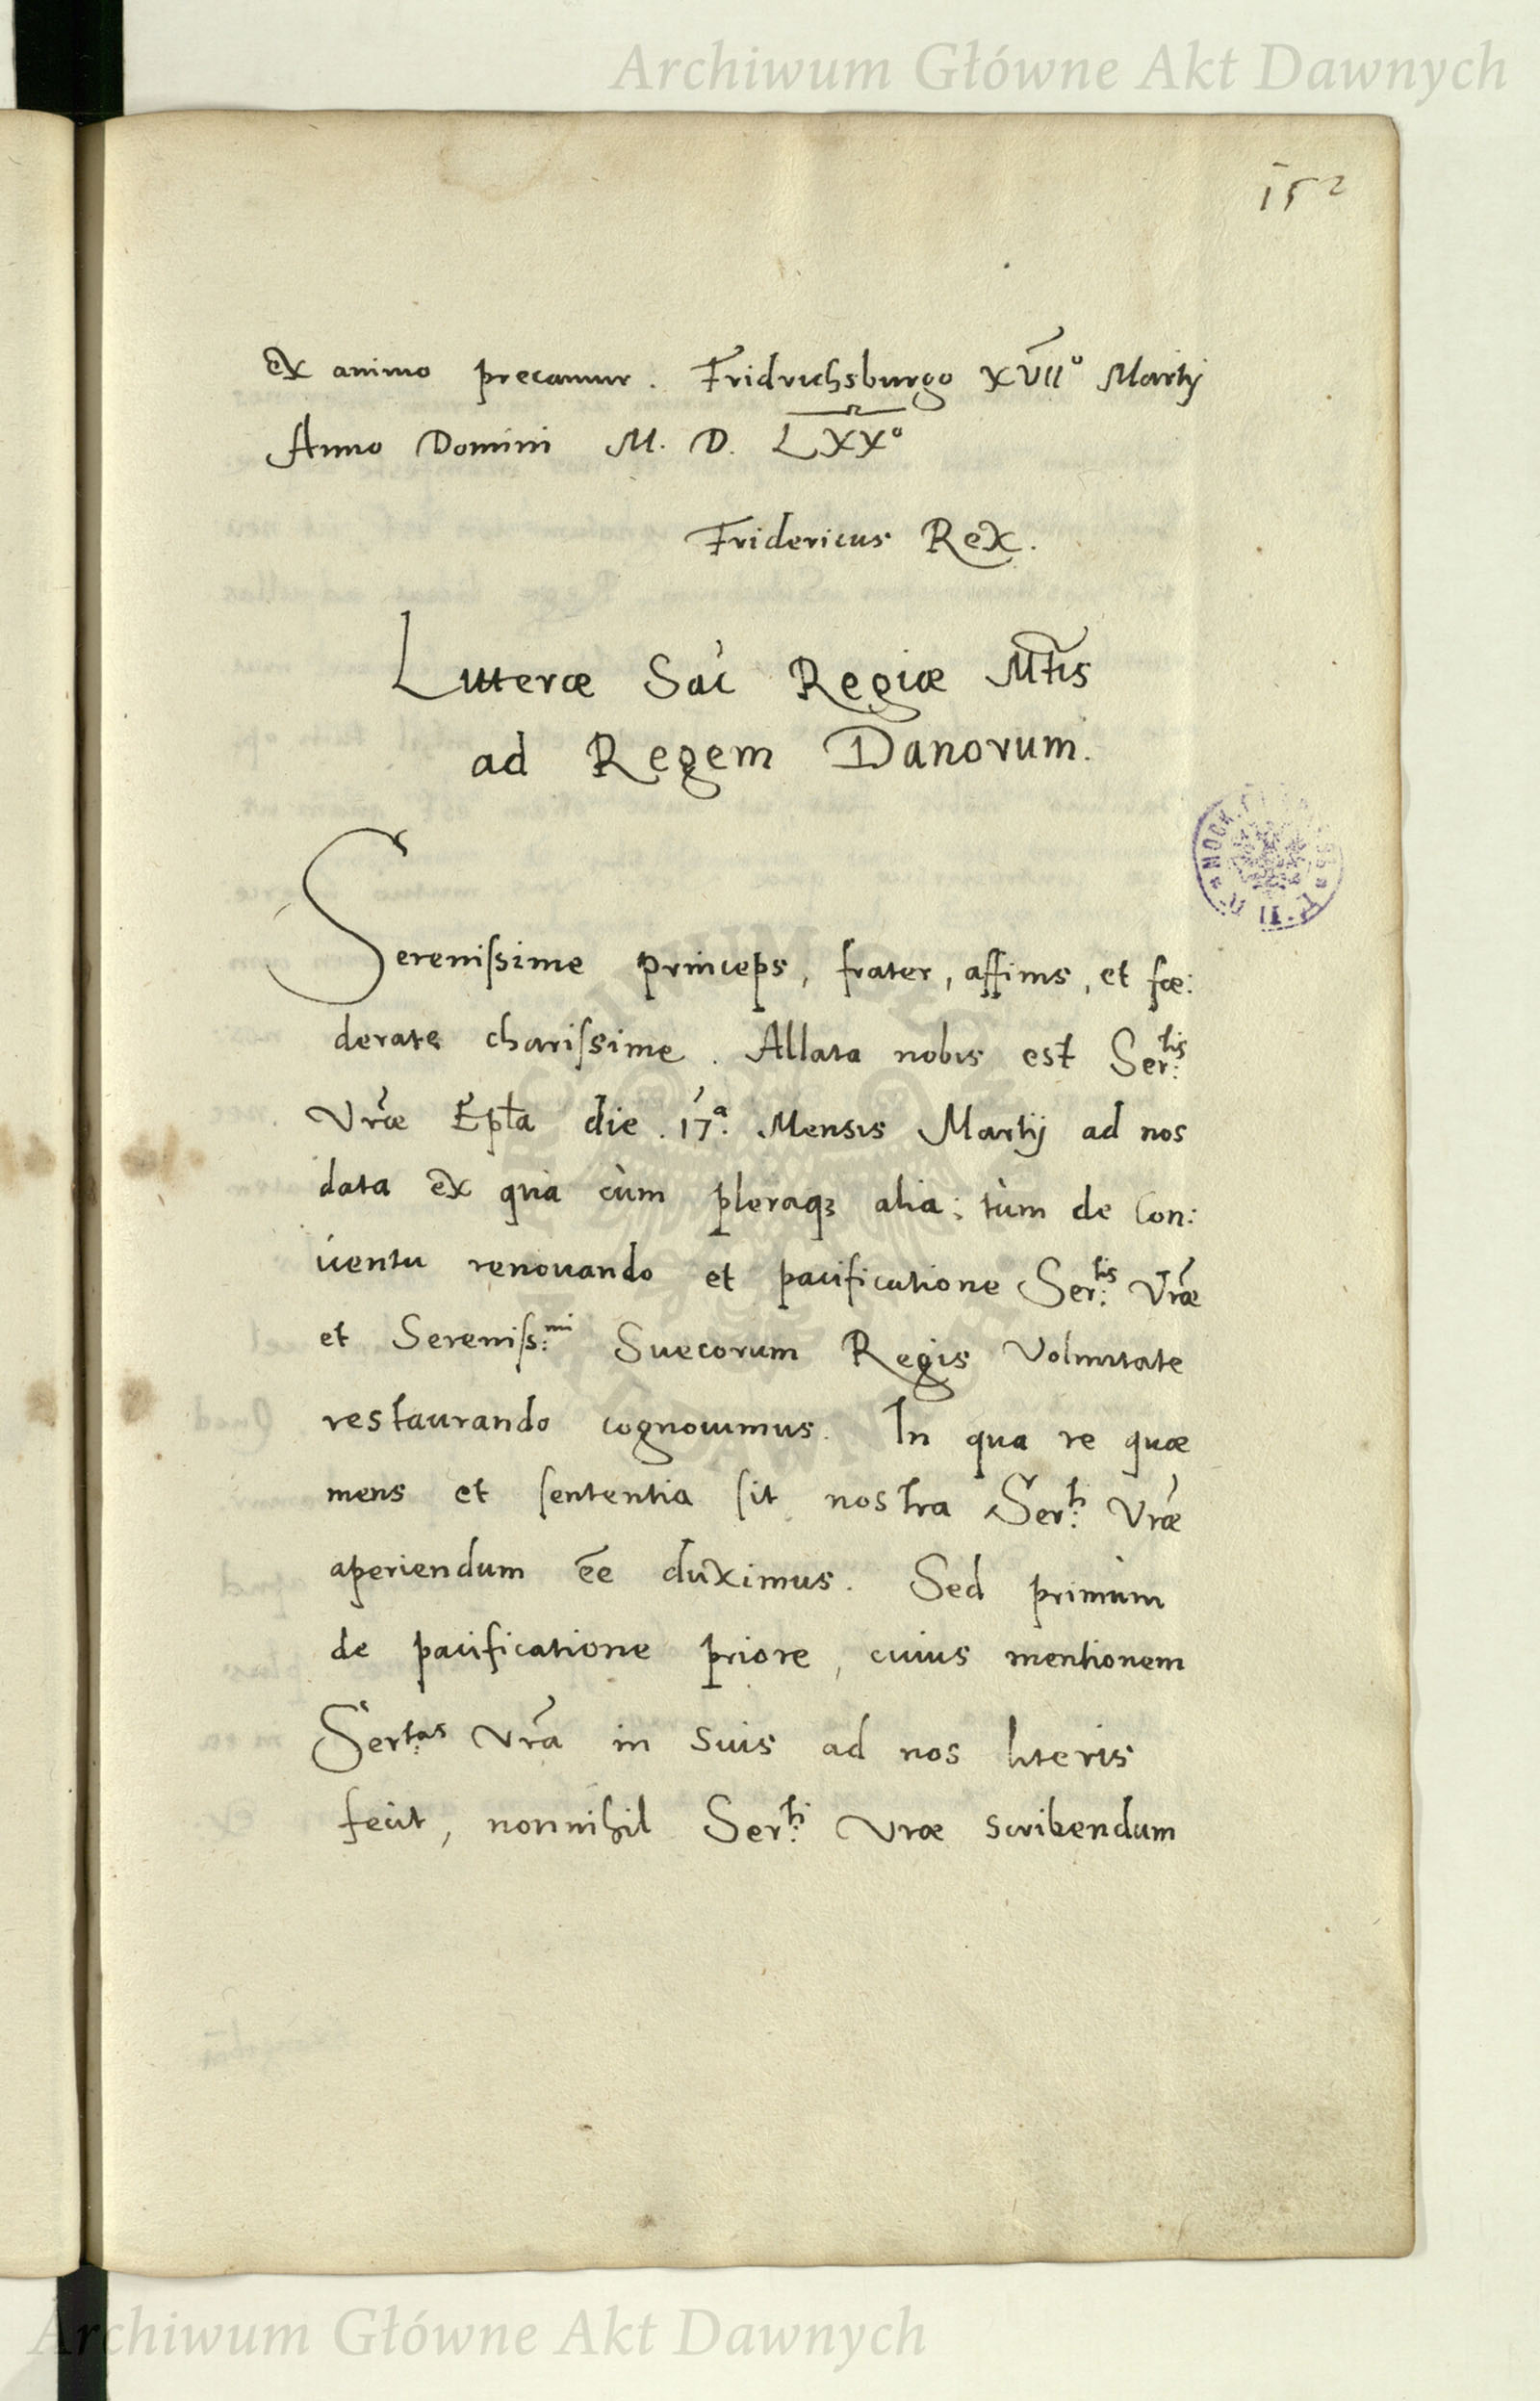 Archiwum Główne Akt Dawnych
152
ex animo precamur. Fridrichsburgo XVII° Martij
Anno Domini M. D. LXX°
Fridericus Rex.
Litteræ Sac Regiæ Mtis
ad Regem Danorum.
Serenissime princeps, frater, affinis, et fœ:
derate charissime. Allata nobis est Ser:tis
Vræ Epta die .17ª. Mensis Martij ad nos
data ex qua cùm pleraq3 alia; tùm de Con:
uentu renouando et pacificatione Ser:tis Vræ
et Sereniss:mi Suecorum Regis Voluntate
restaurando cognouimus. In qua re quæ
mens et sententia sit nostra Ser:ti Vræ
aperiendum ēe duximus. Sed primùm
de pacificatione priore, cuius mentionem
Ser:tas Vrā in suis ad nos literis
fecit, nonnihil Ser:ti Vræ scribendum
Archiwum Główne Akt Dawnych